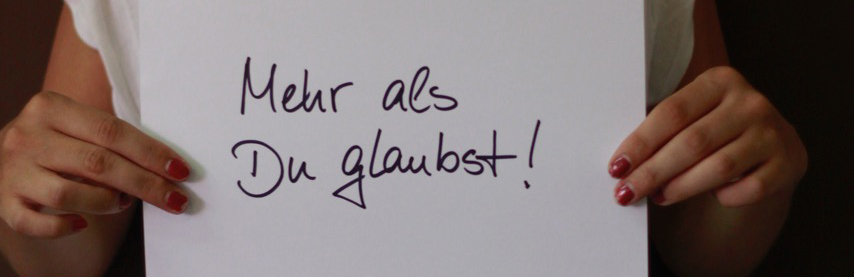 Mehr als
Du glaubst!